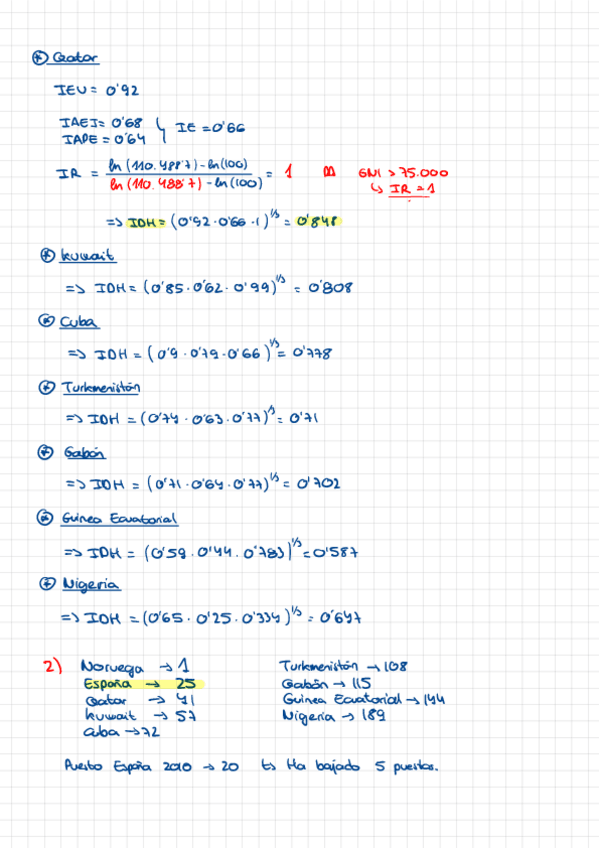 * Qatar
IEV = 0'92
IAEI = 0'68
IAPE = 0'64 } IE = 0'66
IR = (ln (110.488'7) - ln (100)) / (ln (110.488'7) - ln (100)) = 1 GNI > 75.000
↳ IR = 1
=> IDH = (0'92 · 0'66 · 1)^1/3 = 0'848
* Kuwait
=> IDH = (0'85 · 0'62 · 0'99)^1/3 = 0'808
* Cuba
=> IDH = (0'9 · 0'79 · 0'66)^1/3 = 0'778
* Turkmenistán
=> IDH = (0'74 · 0'63 · 0'77)^1/3 = 0'71
* Gabón
=> IDH = (0'71 · 0'64 · 0'77)^1/3 = 0'702
* Guinea Ecuatorial
=> IDH = (0'59 · 0'44 · 0'783)^1/3 = 0'587
* Nigeria
=> IDH = (0'65 · 0'25 · 0'334)^1/3 = 0'647
2) Noruega → 1
España → 25
Qatar → 41
Kuwait → 57
Cuba → 72
Turkmenistán → 108
Gabón → 115
Guinea Ecuatorial → 144
Nigeria → 189
Puesto España 2010 → 20 ↳ Ha bajado 5 puestos.